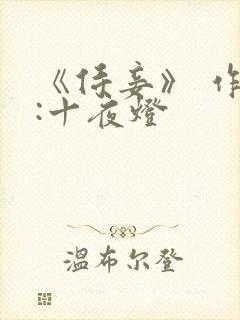 《侯妾》 作
:十夜燈
溫布尔登